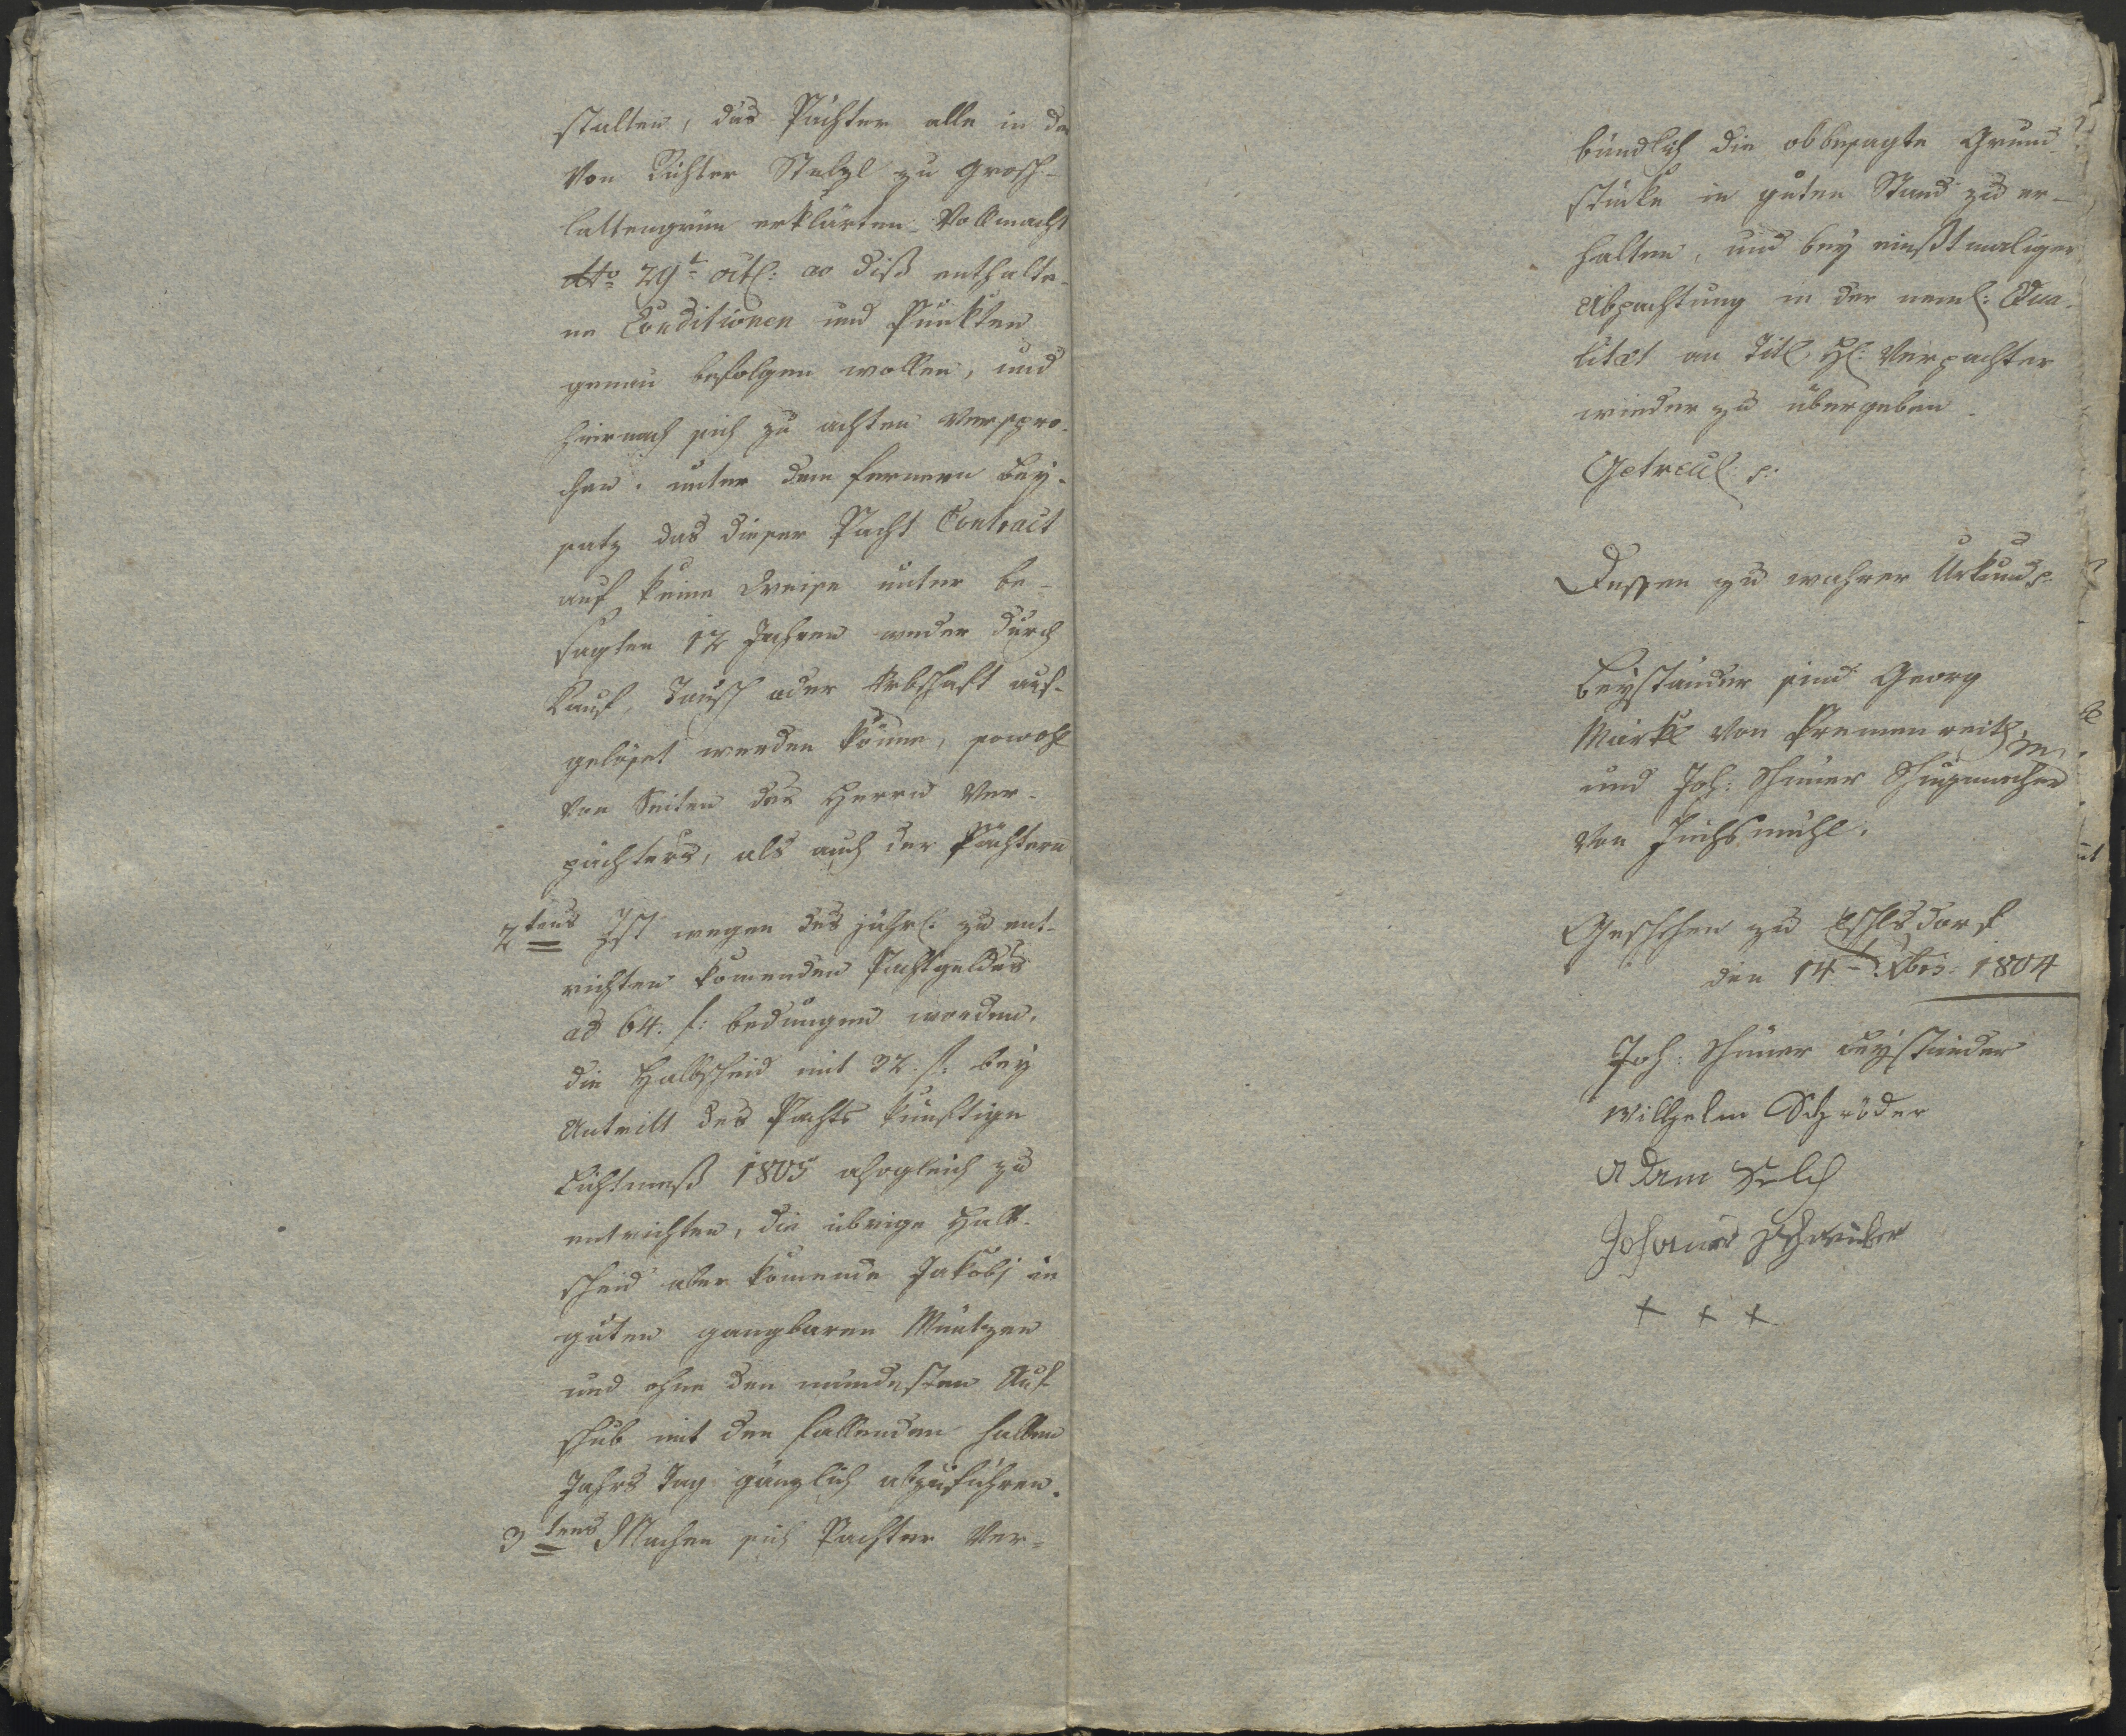 stalten, das Pächter alle in der
von Richter Stelzl zu Grosch-
lattengrün erklärten Vollmacht
dto 29t. oct: ao diß enthalte-
ne Conditionen und Punkten
genau befolgen wollen, und
hiernach sich zu achten verspro-
chen. unter dem fernern Bey-
satz das dieser Pacht Contract
auf keine Weise unter be-
sagten 12 Jahren weder durch
Kauf, Tausch oder Erbschaft auf-
gelößet werden könne, sowohl
von Seiten des Herrn Ver-
pächters, als auch der Pächtern
2tens Ist wegen des jährl: zu ent-
richten komenden Pachtgeldes
ad 64. f: bedungen worden,
die Halbscheid mit 32. f: bey
Antritt des Pachts künftige
Lichtmeß 1805 alsogleich zu
entrichten, die übrige Halb-
scheid aber komende Jakobj in
guten gangbaren Müntzen
und ohne den mindesten Auf-
schub mit den fallenden halben
Jahrs Tag gänzlich abzuführen.
3tens Machen sich Pachter ver-
bündlich die obbesagte Grund-
stücke in guten Stand zu er-
halten, und bey einßtmaliger
Abpachtung in der neml: Qua-
litæt an Titl. H: Verpachter
wieder zu übergeben.
Getreul: p:
Dessen zu wahrer Urkund p.
Beyständer sind Georg
Märkl von Premenreith,
und Joh: Schuhmacher
von Fuchsmühl.
Geschehen zu
den 14t. Xbris: 1804
Joh: Beyständer
Wilhelm Schröder
Adam
Johannes
+ + +.